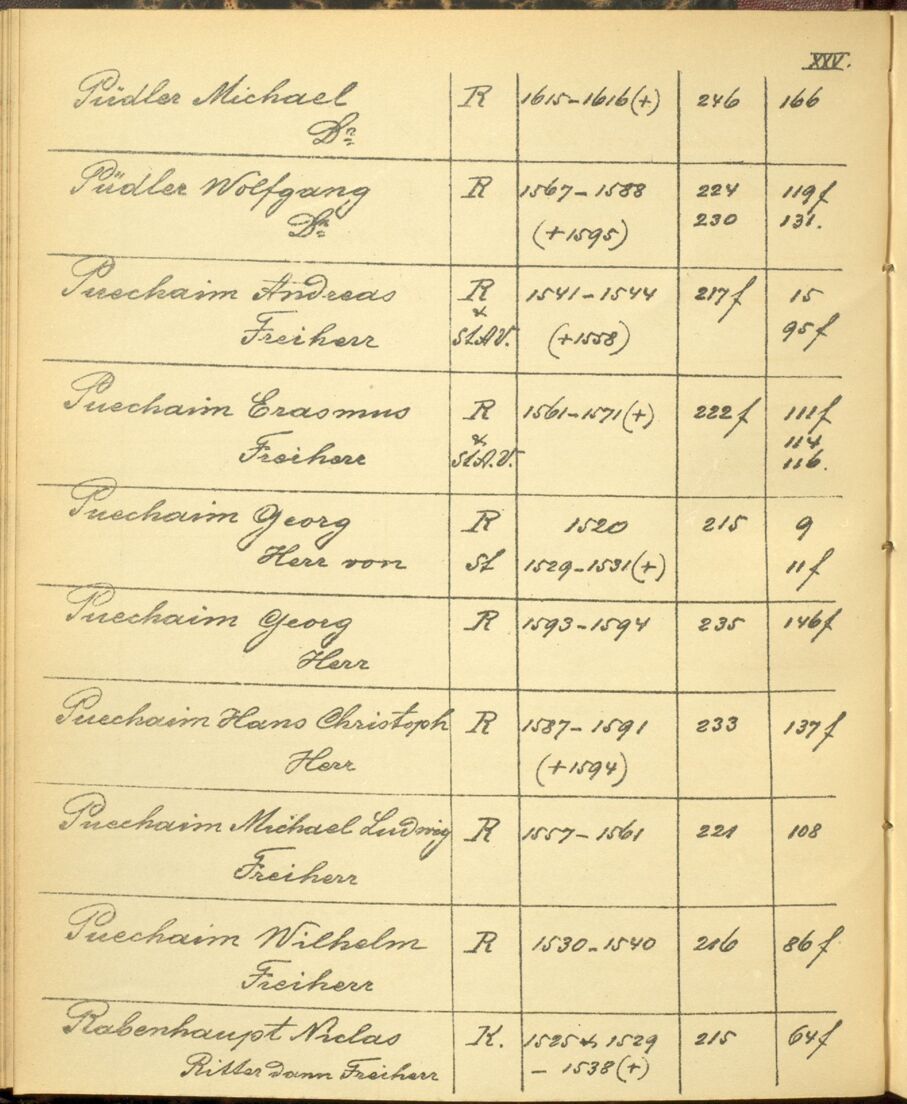 XXV.
Püdler Michael R 1615-1616(+) 246 166
Dr.
Püdler Wolfgang R 1567-1588 224 119f
Dr. (+1595) 230 131.
Puechaim Andreas R 1541-1544 217f 15
Freiherr & St.A.V. (+1558) 95f
Puechaim Erasmus R 1561-1571(+) 222f 111f
& 114
Freiherr St.A.V. 116.
Puechaim Georg R 1520 215 9
Herr von St 1529-1531(+) 11f
Puechaim Georg R 1593-1594 235 146f
Herr
Puechaim Hans Christoph R 1587-1591 233 137f
Herr (+1594)
Puechaim Michael Ludwig R 1557-1561 221 108
Freiherr
Puechaim Wilhelm R 1530-1540 216 86f
Freiherr
Rabenhaupt Niclas K. 1525 & 1529 215 64f
Ritter dann Freiherr - 1538(+)